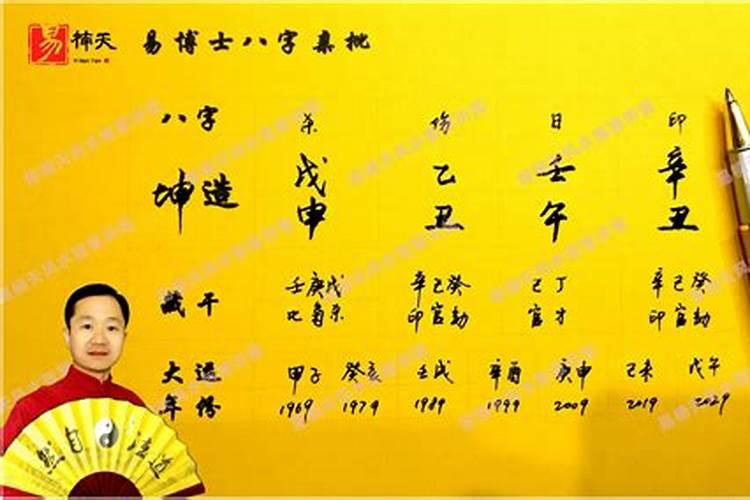 易 楠天 易博士八字桌批
八字 杀 伤 日 印
坤造 戊 乙 壬 辛
申 丑 午 丑
藏干 壬庚戊 辛己癸 己丁 辛己癸
比枭杀 印官劫 官才 印官劫
大运 甲子 癸亥 壬戌 辛酉 庚申 己未 戊午
年份 1969 1979 1989 1999 2009 2019 2029
然自法道